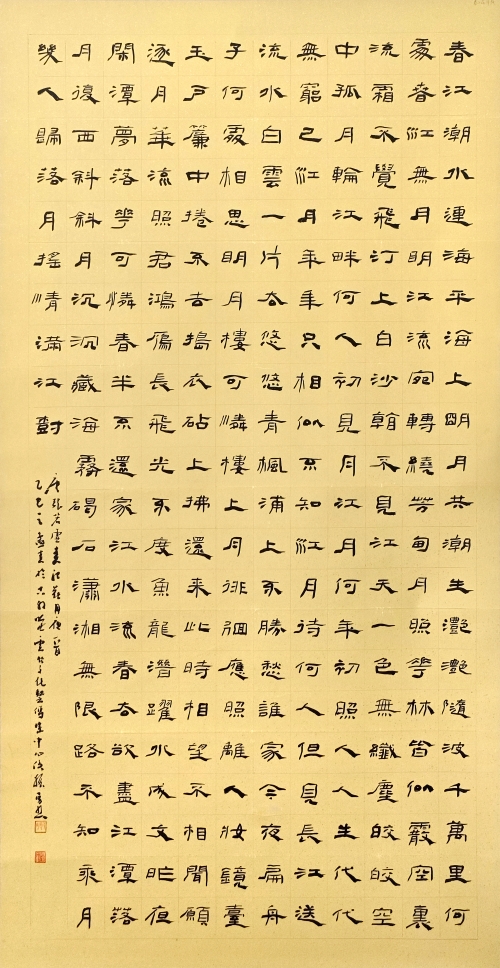 春江潮水連海平海上明月共潮生灩灩隨波千萬里何
處春江無月明江流宛轉繞芳甸月照花林皆似霰空裏
流霜不覺飛汀上白沙看不見江天一色無纖塵皎皎空
中孤月輪江畔何人初見月江月何年初照人人生代代
無窮已江月年年只相似不知江月待何人但見長江送
流水白雲一片去悠悠青楓浦上不勝愁誰家今夜扁舟
子何處相思明月樓可憐樓上月徘徊應照離人妝鏡臺
玉戶簾中捲不去搗衣砧上拂還來此時相望不相聞願
逐月華流照君鴻雁長飛光不度魚龍潛躍水成文昨夜
閑潭夢落花可憐春半不還家江水流春去欲盡江潭落
月復西斜斜月沉沉藏海霧碣石瀟湘無限路不知乘月
幾人歸落月搖情滿江樹
唐張若虛春江花月夜
乙巳之